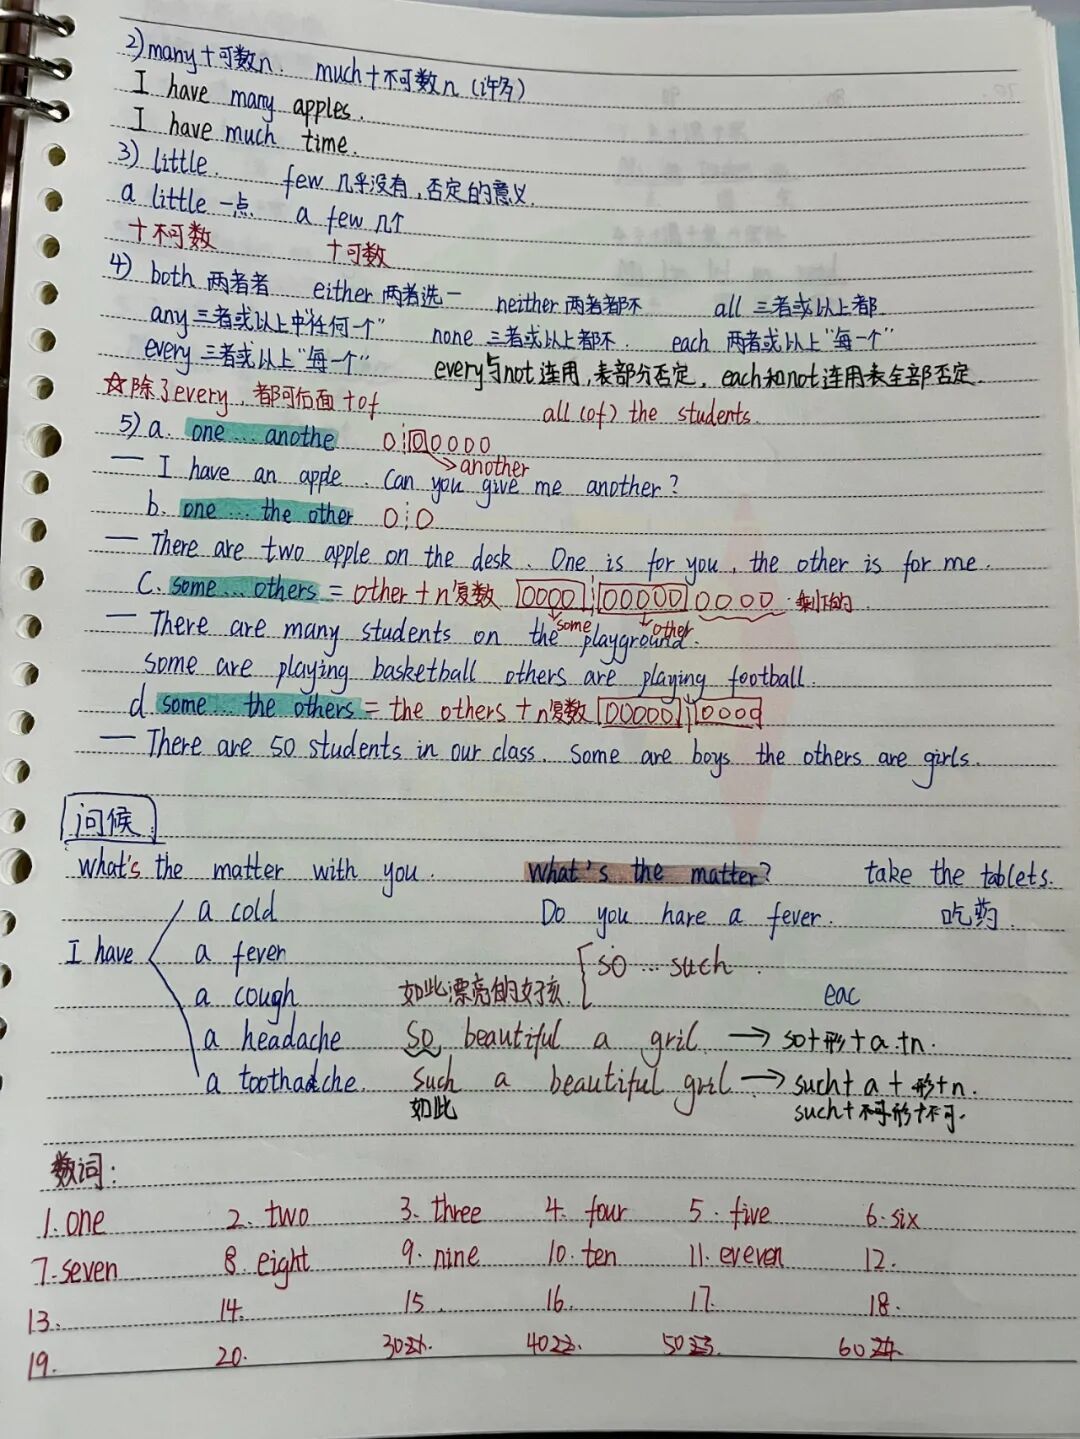 2) many + 可数n. much + 不可数n (许多)
I have many apples.
I have much time.
3) little. few 几乎没有,否定的意义.
a little 一点 a few 几个
+不可数 +可数
4) both 两者者 either 两者选一 neither 两者都不 all 三者或以上都
any 三者或以上中"任何一个" none 三者或以上都不. each 两者或以上"每一个"
every 三者或以上"每一个" every与not连用,表部分否定, each和not连用表全部否定.
☆除了every,都可后面+of all (of) the students.
5) a. one ... anothe 0¦00000
another
— I have an apple. Can you give me another?
b. one ... the other 0¦0
— There are two apple on the desk. One is for you, the other is for me.
C. some ... others = other+n复数 0000¦00000 0000 剩下的.
some other
— There are many students on the playground.
some are playing basketball others are playing football.
d. some ... the others = the others +n复数 00000¦0000
— There are 50 students in our class. Some are boys the others are girls.
问候
what's the matter with you. What's the matter? take the tablets.
a cold Do you hare a fever. 吃药.
I have a fever so ... such
a cough 如此漂亮的女孩. eac
a headache So beautiful a gril → so+形+a+n.
a toothache. Such a beautiful gril → such+a+形+n.
如此 such+不可形+不可.
数词:
1. one 2. two 3. three 4. four 5. five 6. six
7. seven 8. eight 9. nine 10. ten 11. eveven 12.
13. 14. 15. 16. 17. 18.
19. 20. 30 40 50 60